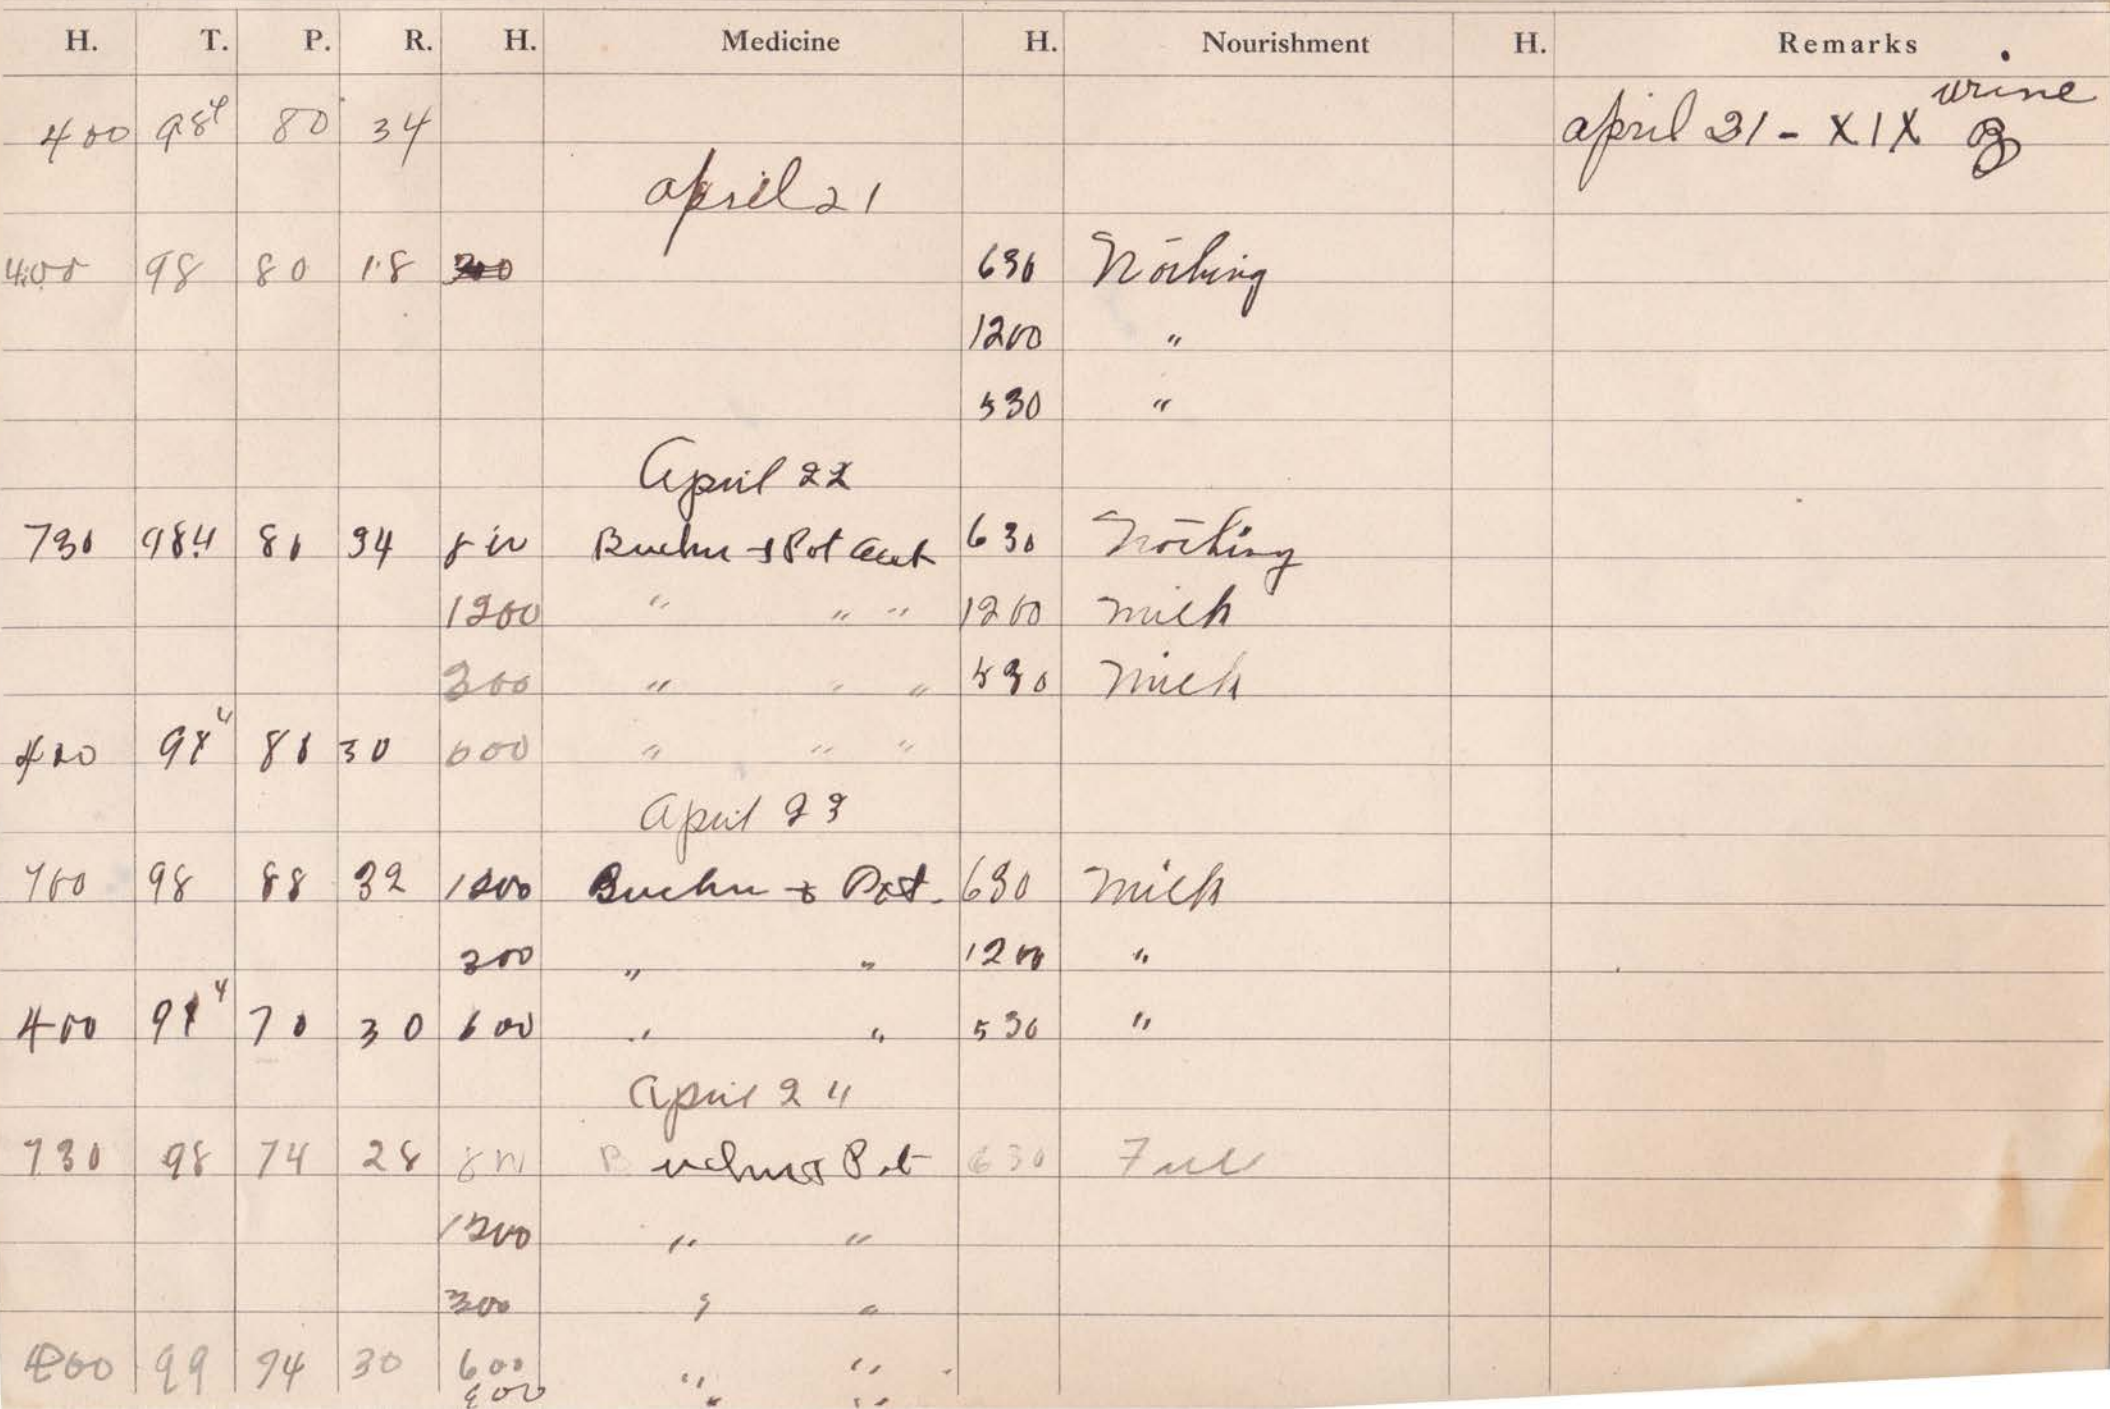 H. T. P. R. H. Medicine H. Nourishment H. Remarks
urine
400 98⁴ 80 34 april 21 - XIX ℥
april 21
4:00 98 80 18 300 630 Nothing
1200 "
530 "
April 22
730 984 80 34 800 Buchu & Pot Acet 630 Nothing
1200 " " " 1200 Milk
300 " " " 530 Milk
400 98⁴ 80 30 600 " " "
April 23
700 98 88 32 1200 Buchu & Pot. 630 Milk
300 " " 1200 "
400 98⁴ 70 30 600 " " 530 "
April 24
730 98 74 28 800 Buchu & Pot 630 Full
1200 " "
300 " "
400 99 74 30 600 " "
800 " "